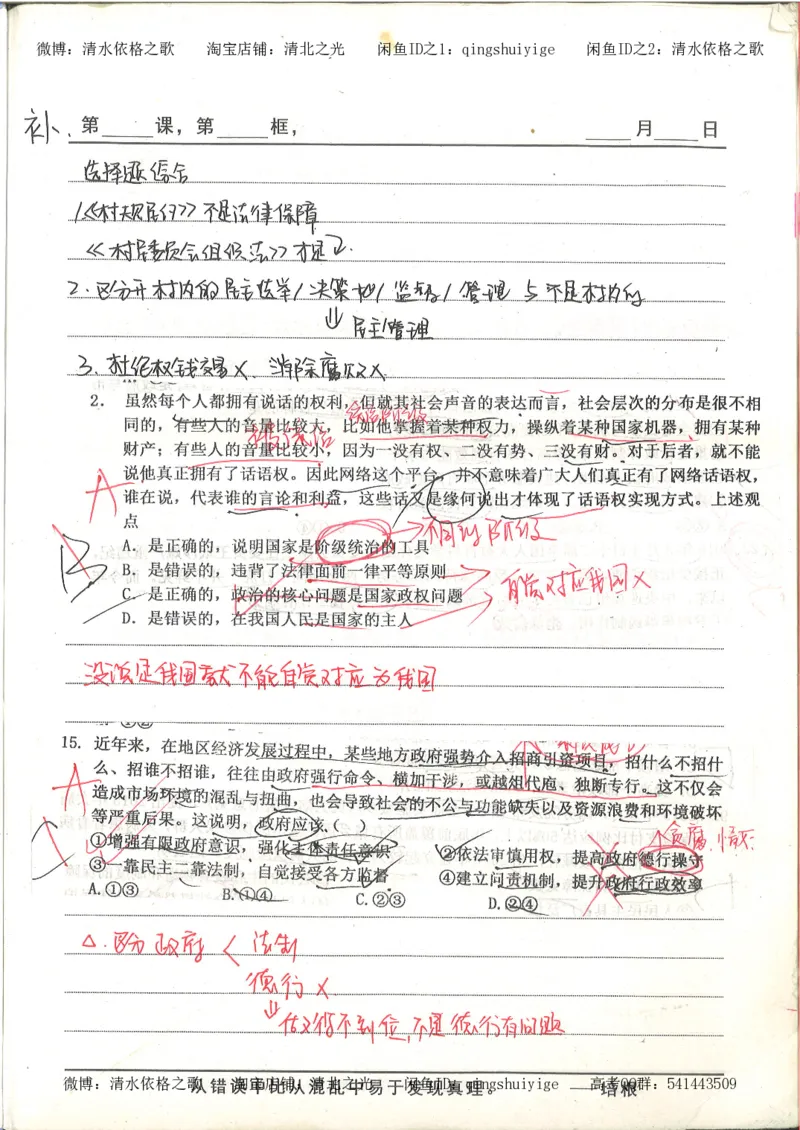 微博：清水依格之歌 淘宝店铺：清北之光 闲鱼ID之1：qingshuiyige 闲鱼ID之2：清水依格之歌
补、第____课，第____框， ____月____日
选择题综合
1.《村规民约》不是法律保障
《村居委员会组织法》才是
2.区分开村内的民主选举/决策地/监督/管理 与不是村内的
⇓民主管理
3.杜绝权钱交易×、消除腐败×
2. 虽然每个人都拥有说话的权利，但就其社会声音的表达而言，社会层次的分布是很不相
同的，有些人的音量比较大，比如他掌握着某种权力，操纵着某种国家机器，拥有某种
财产；有些人的音量比较小，因为一没有权、二没有势、三没有财。对于后者，就不能
说他真正拥有了话语权。因此网络这个平台，并不意味着广大人们真正有了网络话语权，
谁在说，代表谁的言论和利益，这些话又是缘何说出才体现了话语权实现方式。上述观
点
→不同的阶级
A．是正确的，说明国家是阶级统治的工具
B．是错误的，违背了法律面前一律平等原则
C．是正确的，政治的核心问题是国家政权问题
D．是错误的，在我国人民是国家的主人
B
自觉对应我国×
没说是我国就不能自觉对应为我国
15. 近年来，在地区经济发展过程中，某些地方政府强势介入招商引资项目，招什么不招什
么、招谁不招谁，往往由政府强行命令、横加干涉，或越俎代庖、独断专行。这不仅会
造成市场环境的混乱与扭曲，也会导致社会的不公与功能缺失以及资源浪费和环境破坏
等严重后果。这说明，政府应该（ ）
①增强有限政府意识，强化主体责任意识 ②依法审慎用权，提高政府德行操守
③一靠民主二靠法制，自觉接受各方监督 ④建立问责机制，提升政府行政效率
A.①③ B.①④ C.②③ D.②④
△.区分政府＜法制
德行×
⇓
做得不到位，不是德行有问题
微博：清水依格之歌 淘宝店铺：清北之光 闲鱼ID：qingshuiyige 高考QQ群：541443509
从错误中比从混乱中易于发现真理。 ——培根